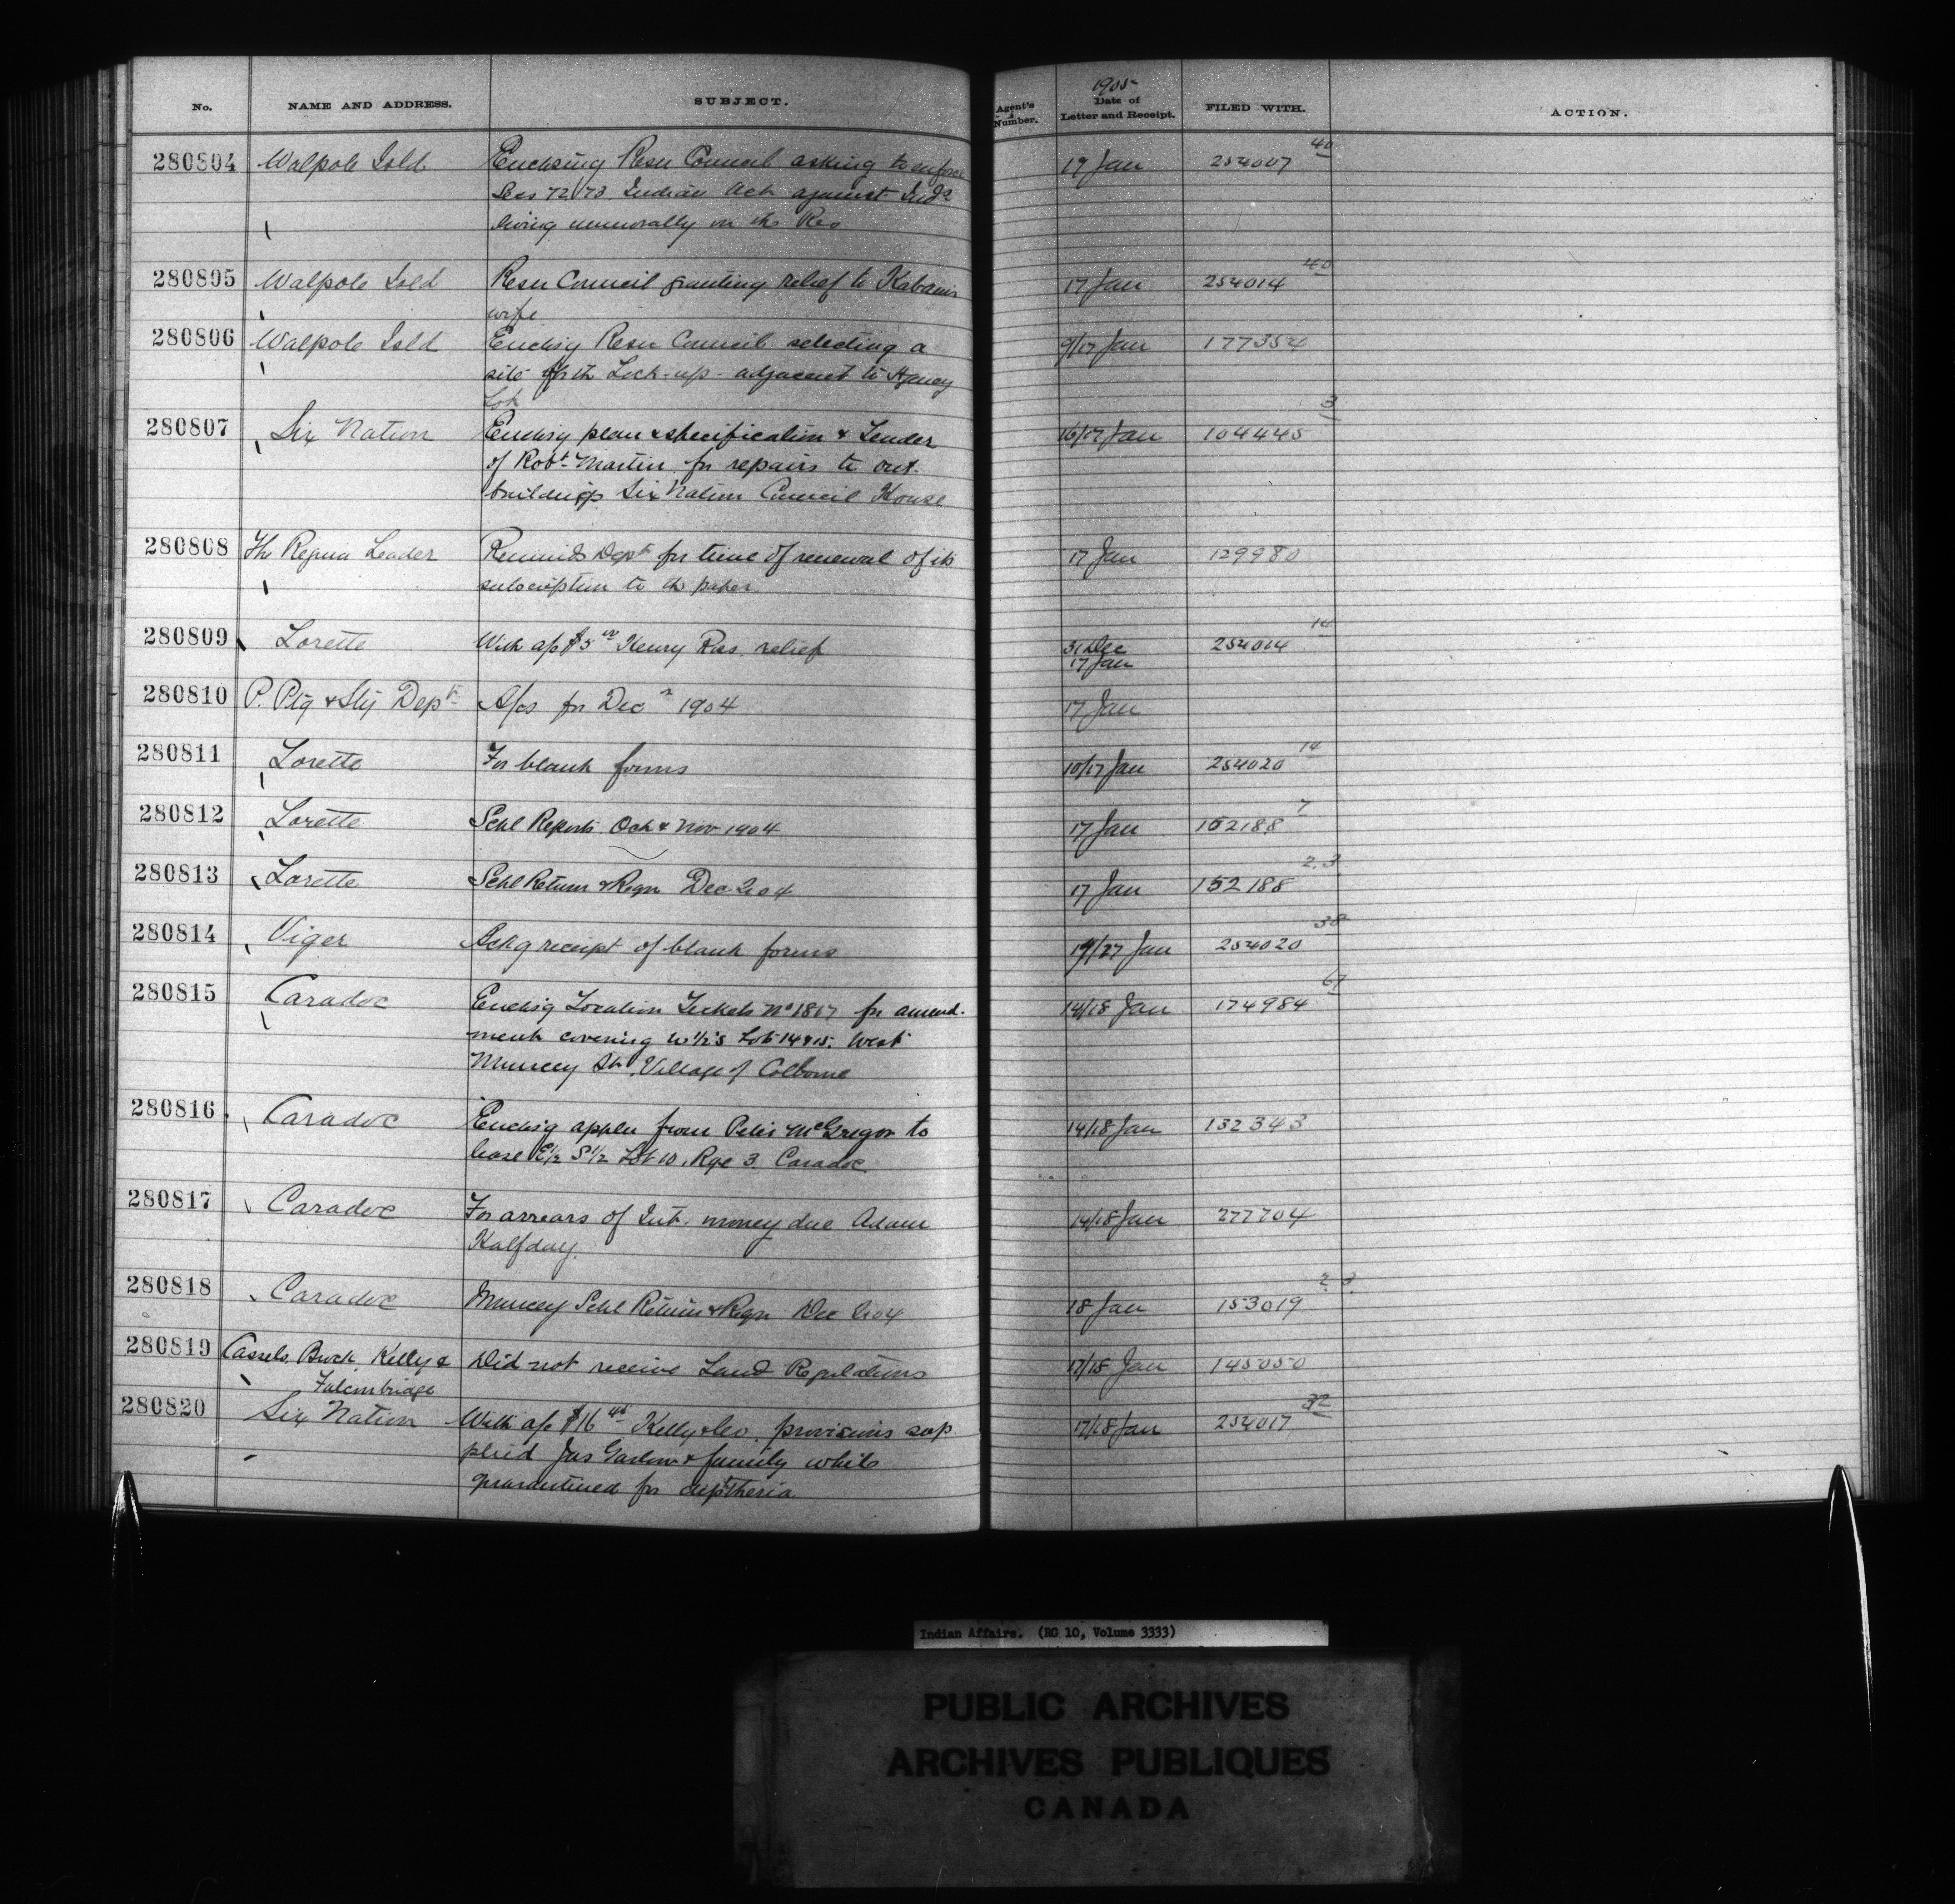 No.
NAME AND ADDRESS.
SUBJECT.
Agent's Number.
1905
Date of Letter and Receipt.
FILED WITH.
ACTION.
280804 Walpole Isld Enclosing Resn Council asking to enforce 17 Jan 254007 40
Secs 72/73 Indian Act against Inds
living immorally on the Res
280805 Walpole Isld Resn Council granting relief to 17 Jan 254014 40
wife
280806 Walpole Isld Enclosg Resn Council selecting a 9/17 Jan 177354
site for the Lock-up adjacent to Agency
Lot
280807 Six Nation Enclosg plan & specification & Tender 16/17 Jan 104445 3
of Robt Martin for repairs to out
buildings Six Nation Council House
280808 The Regina Leader Reminds Dept for time of renewal of its 17 Jan 129980
subscription to the paper
280809 Lorette With a/c $5 00 Henry Ross relief 31 Dec 254014 14
17 Jan
280810 P. Ptg & Sty Dept A/cs for Decr 1904 17 Jan
280811 Lorette For blank forms 10/17 Jan 254020 14
280812 Lorette Schl Reports Oct & Nov 1904 17 Jan 152188 7
280813 Lorette Schl Return & Regr Dec 2.04 17 Jan 152188 2.3
280814 Viger Ackg receipt of blank forms /27 Jan 254020 38
280815 Caradoc Enclosg Location Tickets No 1817 for amend- 14/18 Jan 174984 61
ment covering W 1/2s Lots 14 & 15. West
Muncey St. Village of Colborne
280816 Caradoc Enclosg appln from Peter McGregor to 14/18 Jan 132343
lease E 1/2 S 1/2 Lot 10, Rge 3. Caradoc
280817 Caradoc For arrears of Int. money due Adam 14/18 Jan 277704
Halfday.
280818 Caradoc Muncey Schl Return & Regr Dec 2.04 18 Jan 153019 2.3.
280819 Cassels, Brock, Kelly & Did not receive Land Regulations 17/18 Jan 145050
Falconbridge
280820 Six Nation With a/c $16 45 Kelly & Co. provisions sup 17/18 Jan 254017 32
plied Jas Garlow & family while
quarantined for diptheria
Indian Affairs. (RG 10, Volume 3333)
PUBLIC ARCHIVES
ARCHIVES PUBLIQUES
CANADA